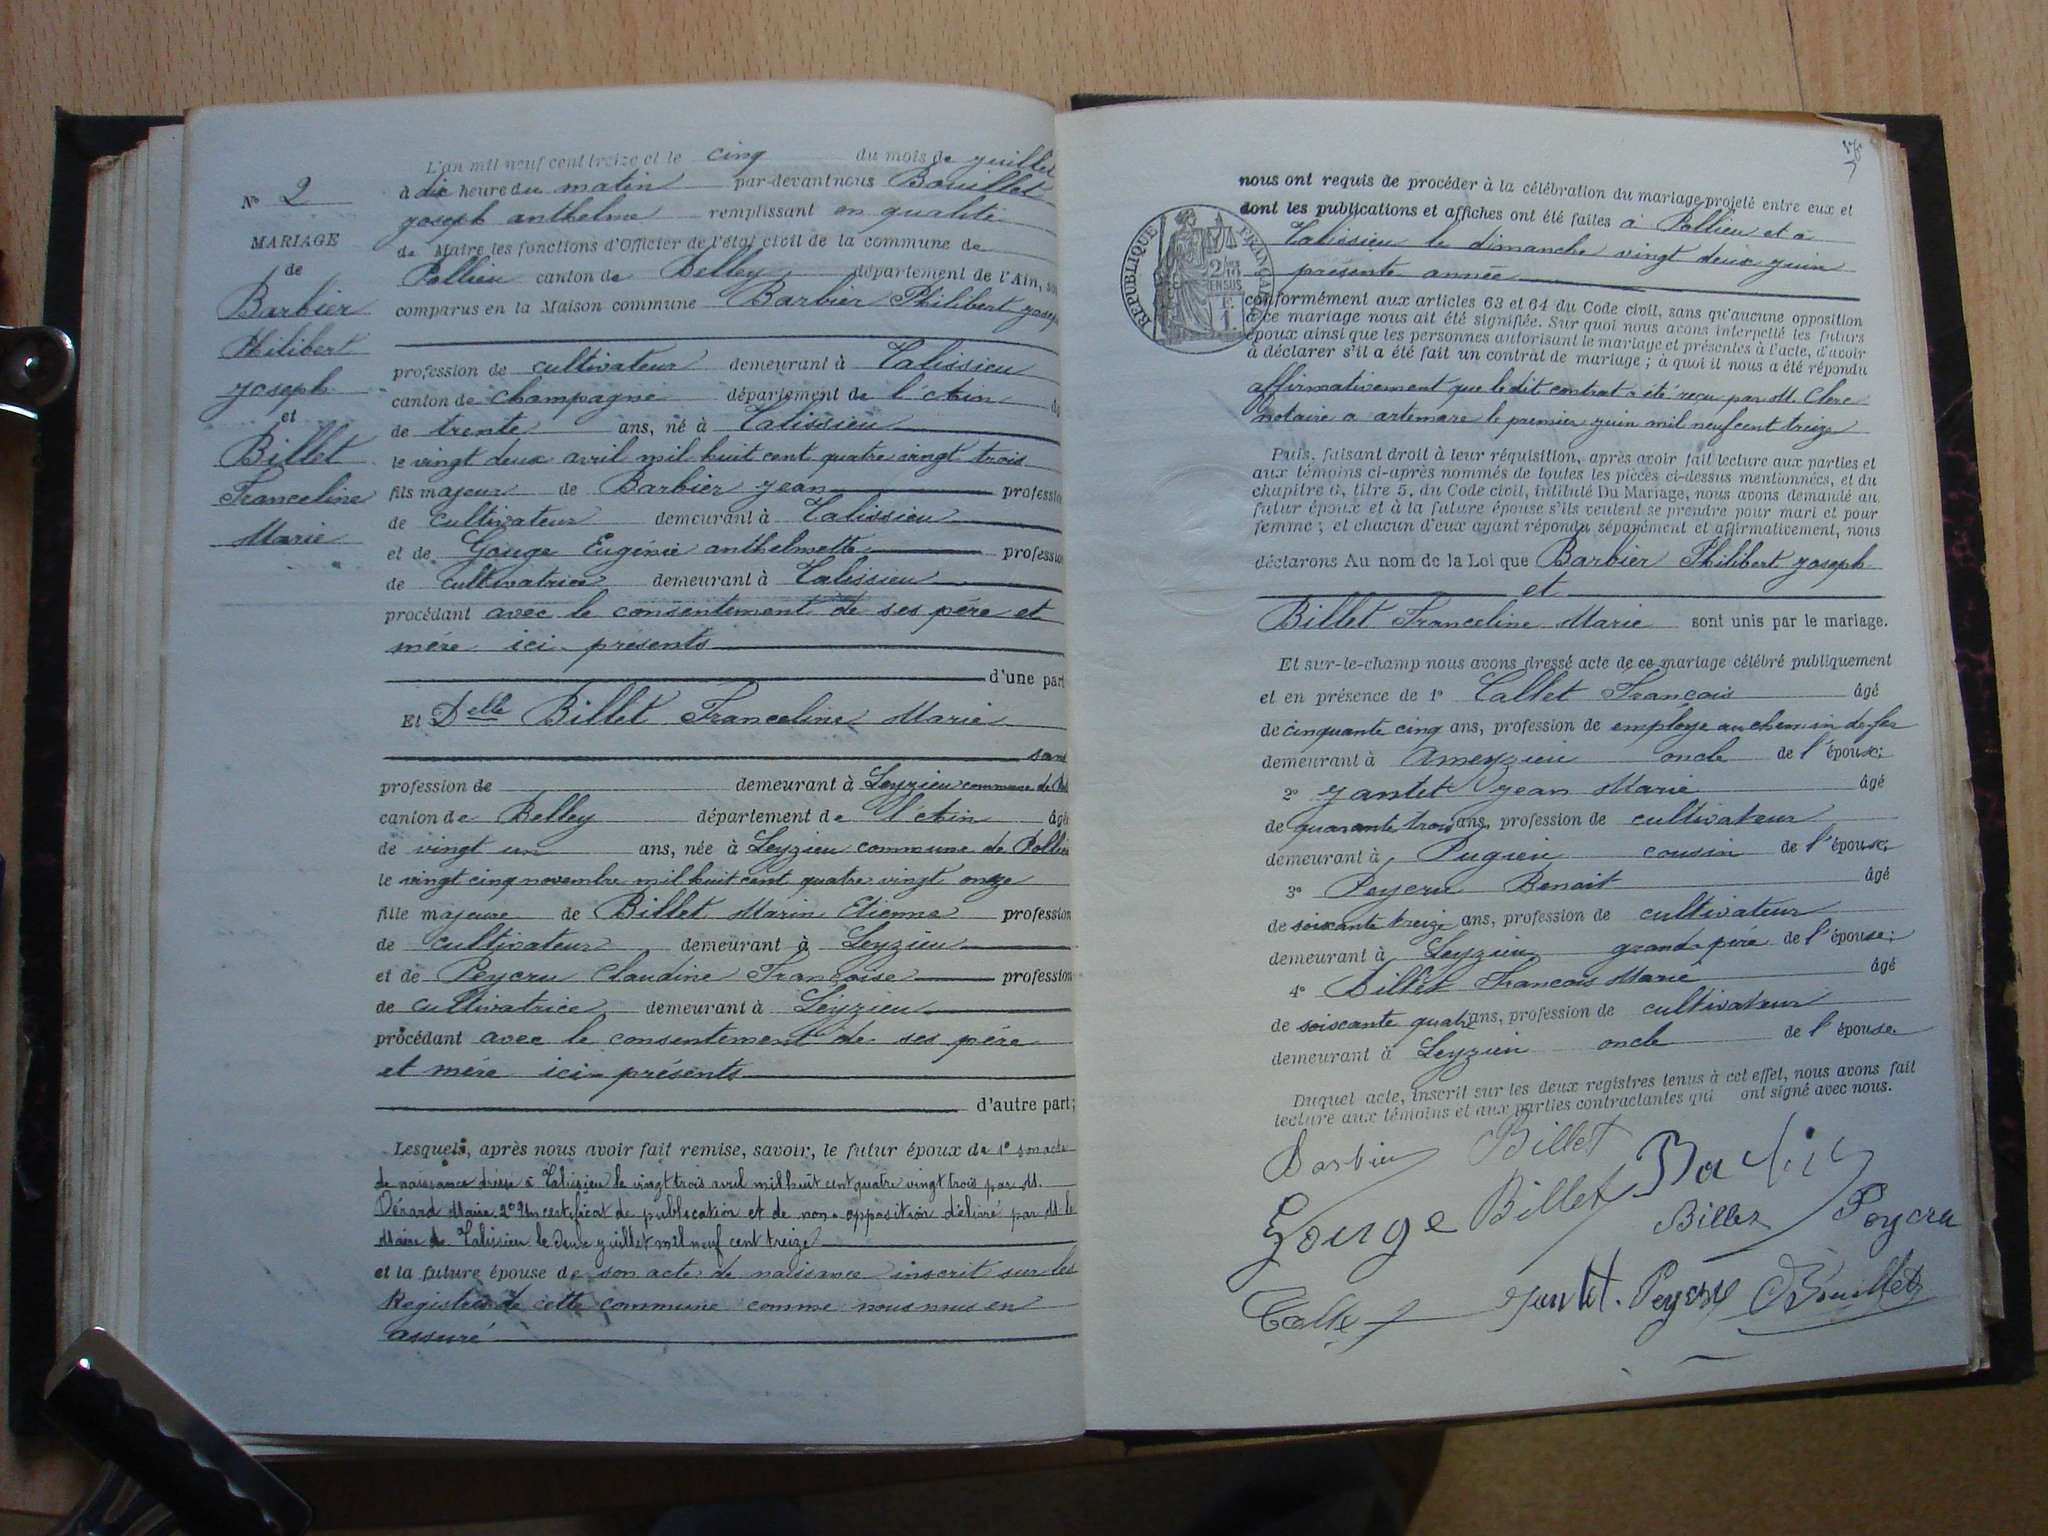 L'an mil neuf cent treize et le cinq du mois de juillet
à dix heure du matin par-devant nous Bouillet
joseph anthelme remplissant en qualité
de Maire les fonctions d'Officier de l'état civil de la commune de
Pollieu canton de Belley département de l'Ain, sont
comparus en la Maison commune Barbier Philibert joseph
profession de cultivateur demeurant à Talissieu
canton de champagne département de l'Ain
de trente ans, né à Talissieu
le vingt deux avril mil huit cent quatre vingt trois
fils majeur de Barbier jean profession
de cultivateur demeurant à Talissieu
et de Gouge Eugénie anthelmette profession
de cultivatrice demeurant à Talissieu
procédant avec le consentement de ses père et
mère ici présents
d'une part
Et Delle Billet Franceline Marie
sans
profession de demeurant à Leyzieu commune de
canton de Belley département de l'Ain âgée
de vingt un ans, née à Leyzieu commune de Pollieu
le vingt cinq novembre mil huit cent quatre vingt onze
fille majeure de Billet Marin Etienne profession
de cultivateur demeurant à Leyzieu
et de Peycru Claudine Françoise profession
de cultivatrice demeurant à Leyzieu
procédant avec le consentement de ses père
et mère ici présents
d'autre part;
Lesquels, après nous avoir fait remise, savoir, le futur époux de 1° son acte
de naissance dressé à Talissieu le vingt trois avril mil huit cent quatre vingt trois par M.
Dérard Maire 2° Un certificat de publication et de non-opposition délivré par M le
Maire de Talissieu le deux juillet mil neuf cent treize
et la future épouse de son acte de naissance inscrit sur les
Registres de cette commune comme nous nous en
assuré
N° 2
MARIAGE
de
Barbier
Philibert
joseph
et
Billet
Franceline
Marie
nous ont requis de procéder à la célébration du mariage projeté entre eux et
dont les publications et affiches ont été faites à Pollieu et à
Talissieu le dimanche vingt deux juin
présente année
conformément aux articles 63 et 64 du Code civil, sans qu'aucune opposition
à ce mariage nous ait été signifiée. Sur quoi nous avons interpellé les futurs
époux ainsi que les personnes autorisant le mariage et présentes à l'acte, d'avoir
à déclarer s'il a été fait un contrat de mariage; à quoi il nous a été répondu
affirmativement que le dit contrat a été reçu par M. Clerc
notaire a artemare le premier juin mil neuf cent treize
Puis, faisant droit à leur réquisition, après avoir fait lecture aux parties et
aux témoins ci-après nommés de toutes les pièces ci-dessus mentionnées, et du
chapitre 6, titre 5, du Code civil, intitulé Du Mariage, nous avons demandé au
futur époux et à la future épouse s'ils veulent se prendre pour mari et pour
femme; et chacun d'eux ayant répondu séparément et affirmativement, nous
déclarons Au nom de la Loi que Barbier Philibert joseph
et
Billet Franceline Marie sont unis par le mariage.
Et sur-le-champ nous avons dressé acte de ce mariage célébré publiquement
et en présence de 1° Callet François âgé
de cinquante cinq ans, profession de employe au chemin de fer
demeurant à Ameyzieu oncle de l'épouse;
2° Jantet jean Marie âgé
de quarante trois ans, profession de cultivateur
demeurant à Pugieu cousin de l'épouse;
3° Peycru Benoit âgé
de soixante treize ans, profession de cultivateur
demeurant à Leyzieu grand-père de l'épouse;
4° Billet François Marie âgé
de soixante quatre ans, profession de cultivateur
demeurant à Leyzieu oncle de l'épouse
Duquel acte, inscrit sur les deux registres tenus à cet effet, nous avons fait
lecture aux témoins et aux parties contractantes qui ont signé avec nous.
Barbier Billet Barbier
Gouge Billet Billet Peycru
Callet Jantet. Peycru Bouillet
RÉPUBLIQUE FRANÇAISE